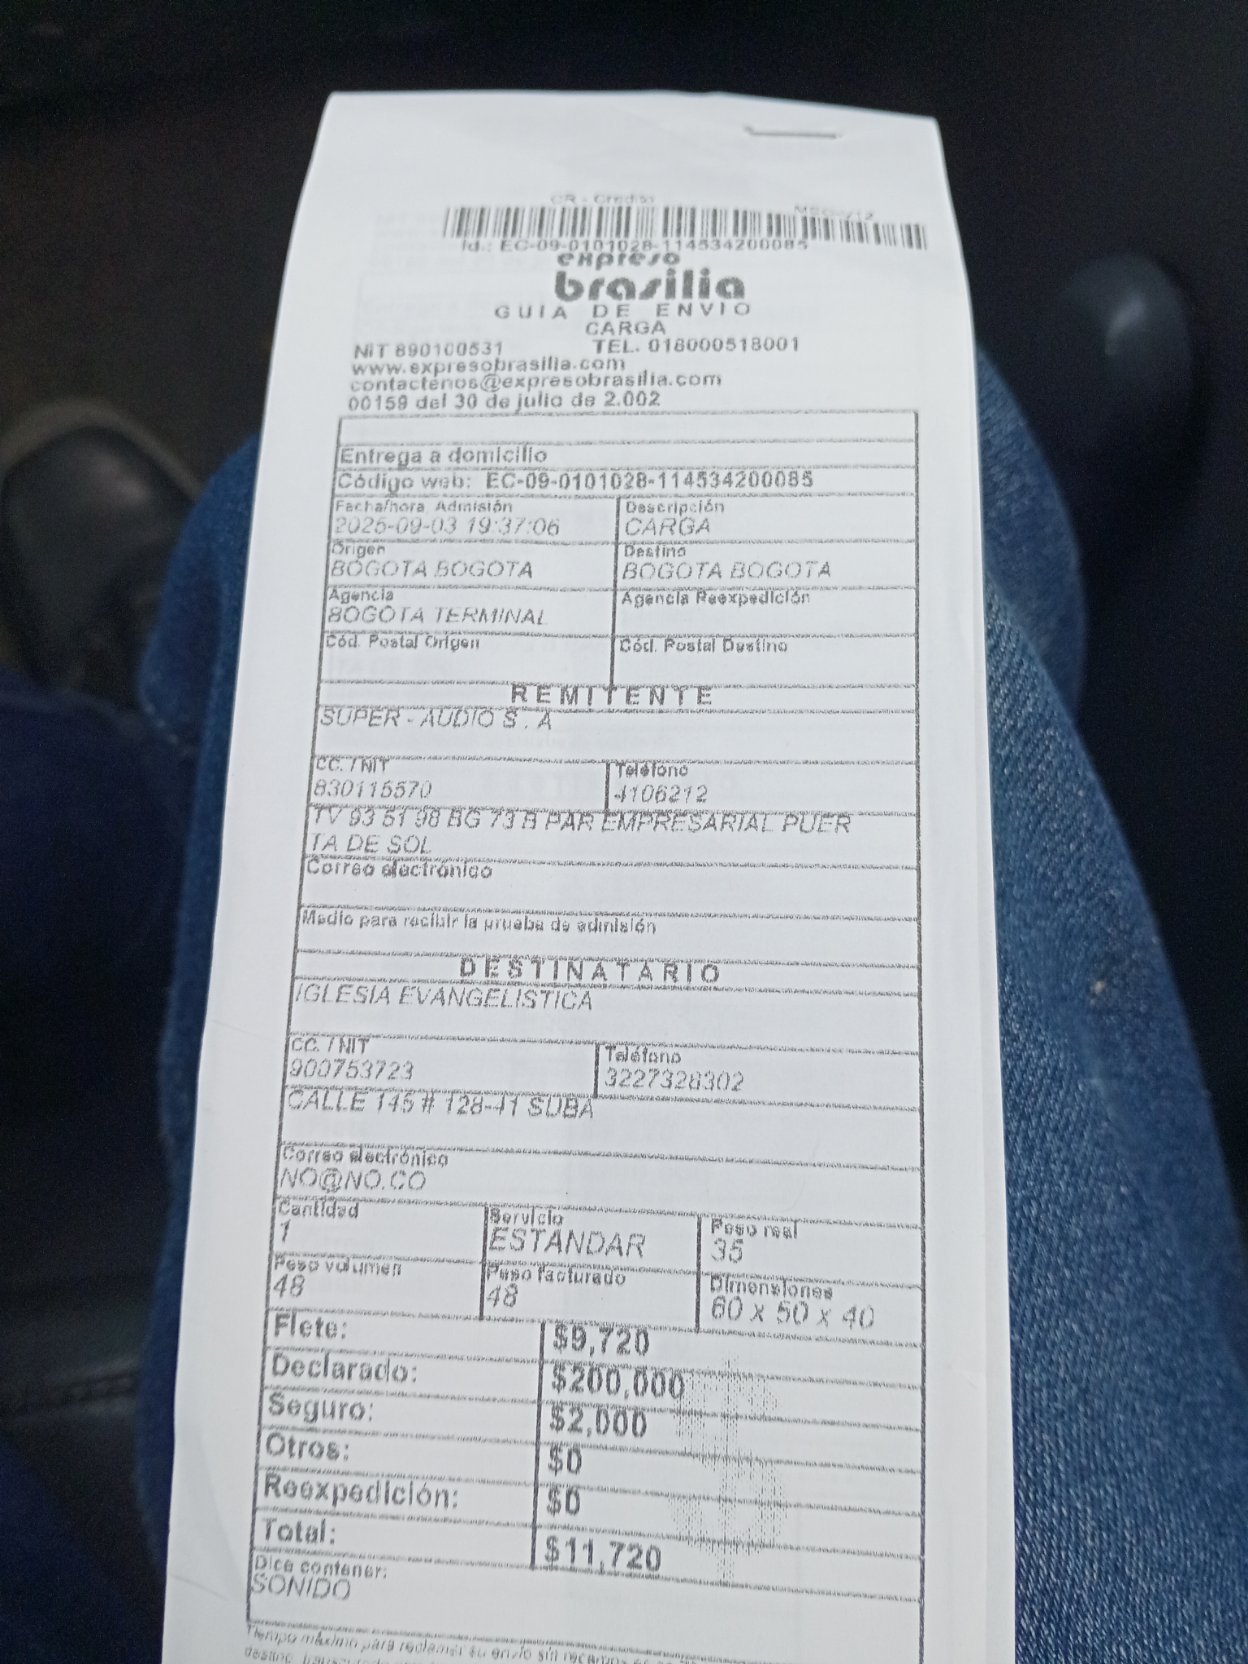 CR - Credito
Id.: EC-09-0101028-114534200085
expreso
brasilia
GUIA DE ENVIO
CARGA
NIT 890100531 TEL. 018000518001
www.expresobrasilia.com
contactenos@expresobrasilia.com
00159 del 30 de julio de 2.002
Entrega a domicilio
Código web: EC-09-0101028-114534200085
Fecha/hora Admisión Descripción
2025-09-03 19:37:06 CARGA
Origen Destino
BOGOTA BOGOTA BOGOTA BOGOTA
Agencia Agencia Reexpedición
BOGOTA TERMINAL
Cód. Postal Origen Cód. Postal Destino
REMITENTE
SUPER - AUDIO S . A
CC. / NIT Teléfono
830115570 4106212
TV 93 51 98 BG 73 B PAR EMPRESARIAL PUER
TA DE SOL
Correo electrónico
Medio para recibir la prueba de admisión
DESTINATARIO
IGLESIA EVANGELISTICA
CC. / NIT Teléfono
900753723 3227328302
CALLE 145 # 128-41 SUBA
Correo electrónico
NO@NO.CO
Cantidad Servicio Peso real
1 ESTANDAR 35
Peso volumen Peso facturado Dimensiones
48 48 60 x 50 x 40
Flete: $9,720
Declarado: $200,000
Seguro: $2,000
Otros: $0
Reexpedición: $0
Total: $11,720
Dice contener:
SONIDO
Tiempo máximo para reclamar su envío sin